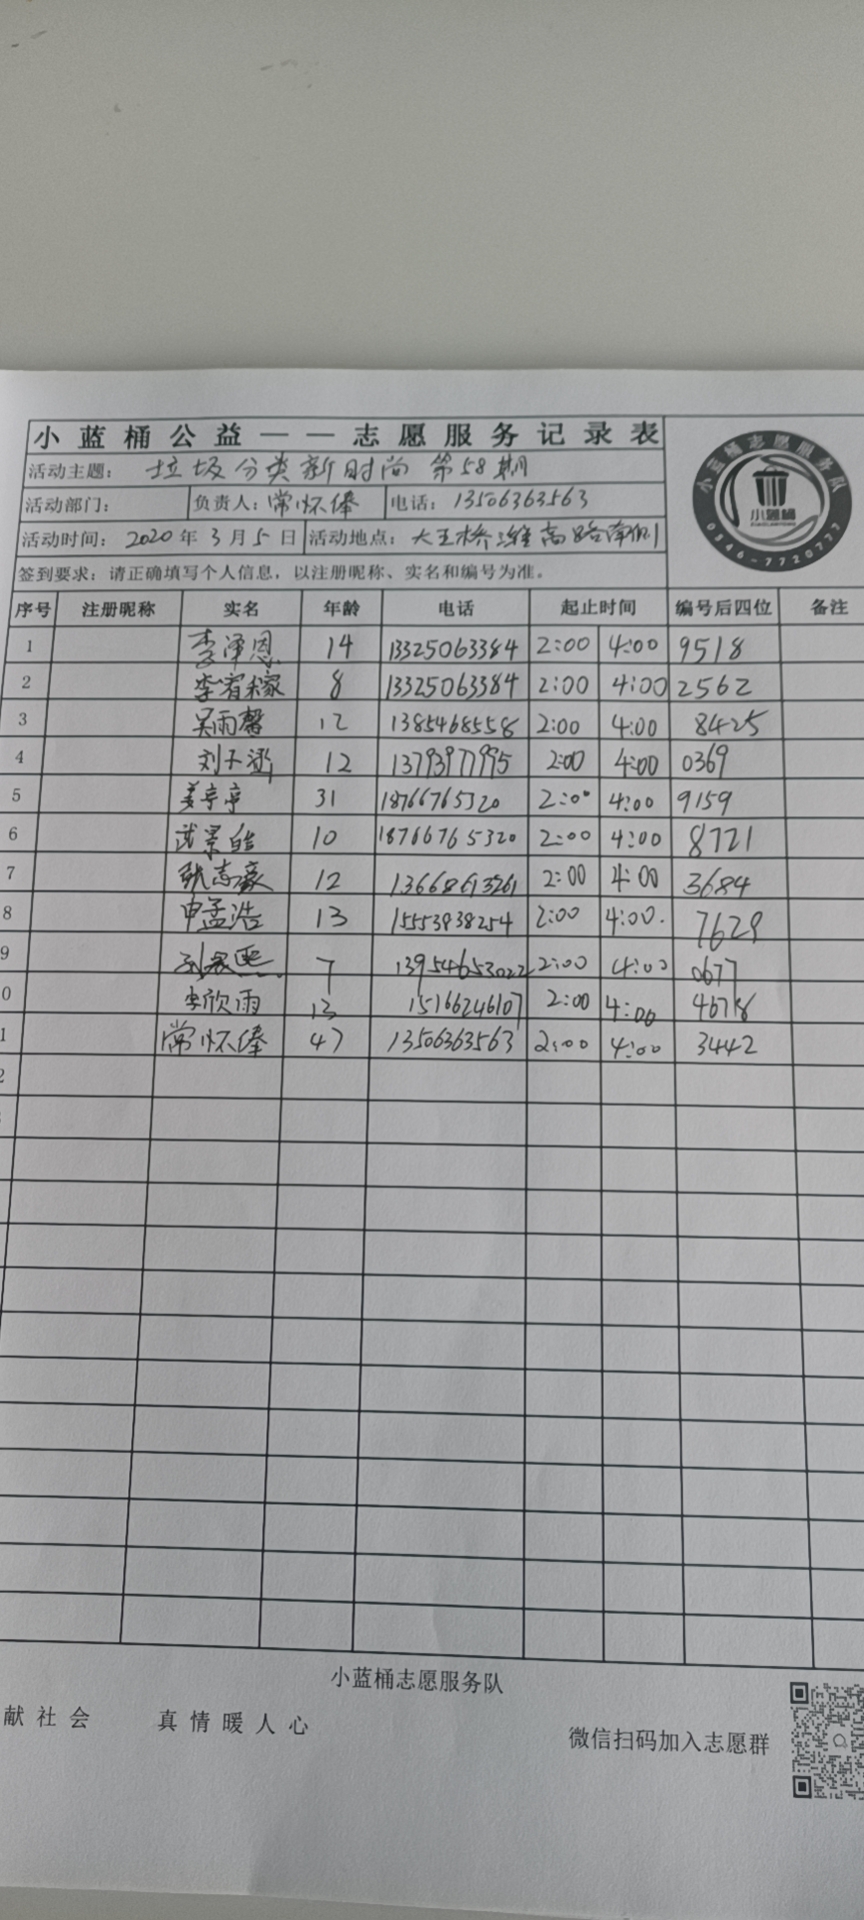 小蓝桶公益——志愿服务记录表
活动主题: 垃圾分类新时尚 第58期
活动部门: 负责人: 常怀俸 电话: 13506363563
活动时间: 2020年3月5日 活动地点: 大王桥潍高路南侧
签到要求: 请正确填写个人信息, 以注册昵称、实名和编号为准。
小蓝桶志愿服务队
小蓝桶
0546-7720777
序号 注册昵称 实名 年龄 电话 起止时间 编号后四位 备注
1 李泽恩 14 13325063384 2:00 4:00 9518
2 李宥稼 8 13325063384 2:00 4:00 2562
3 吴雨馨 12 1385468558 2:00 4:00 8425
4 刘子 12 13793977995 2:00 4:00 0369
5 姜亭亭 31 18766765320 2:00 4:00 9159
6 武景皓 10 18766765320 2:00 4:00 8721
7 张志豪 12 13668613261 2:00 4:00 3684
8 申孟浩 13 15553938254 2:00 4:00. 7629
9 7 13954653022 2:00 4:00 0677
0 李欣雨 13 15166246107 2:00 4:00 4678
1 常怀俸 47 13506363563 2:00 4:00 3442
2
小蓝桶志愿服务队
献社会 真情暖人心 微信扫码加入志愿群